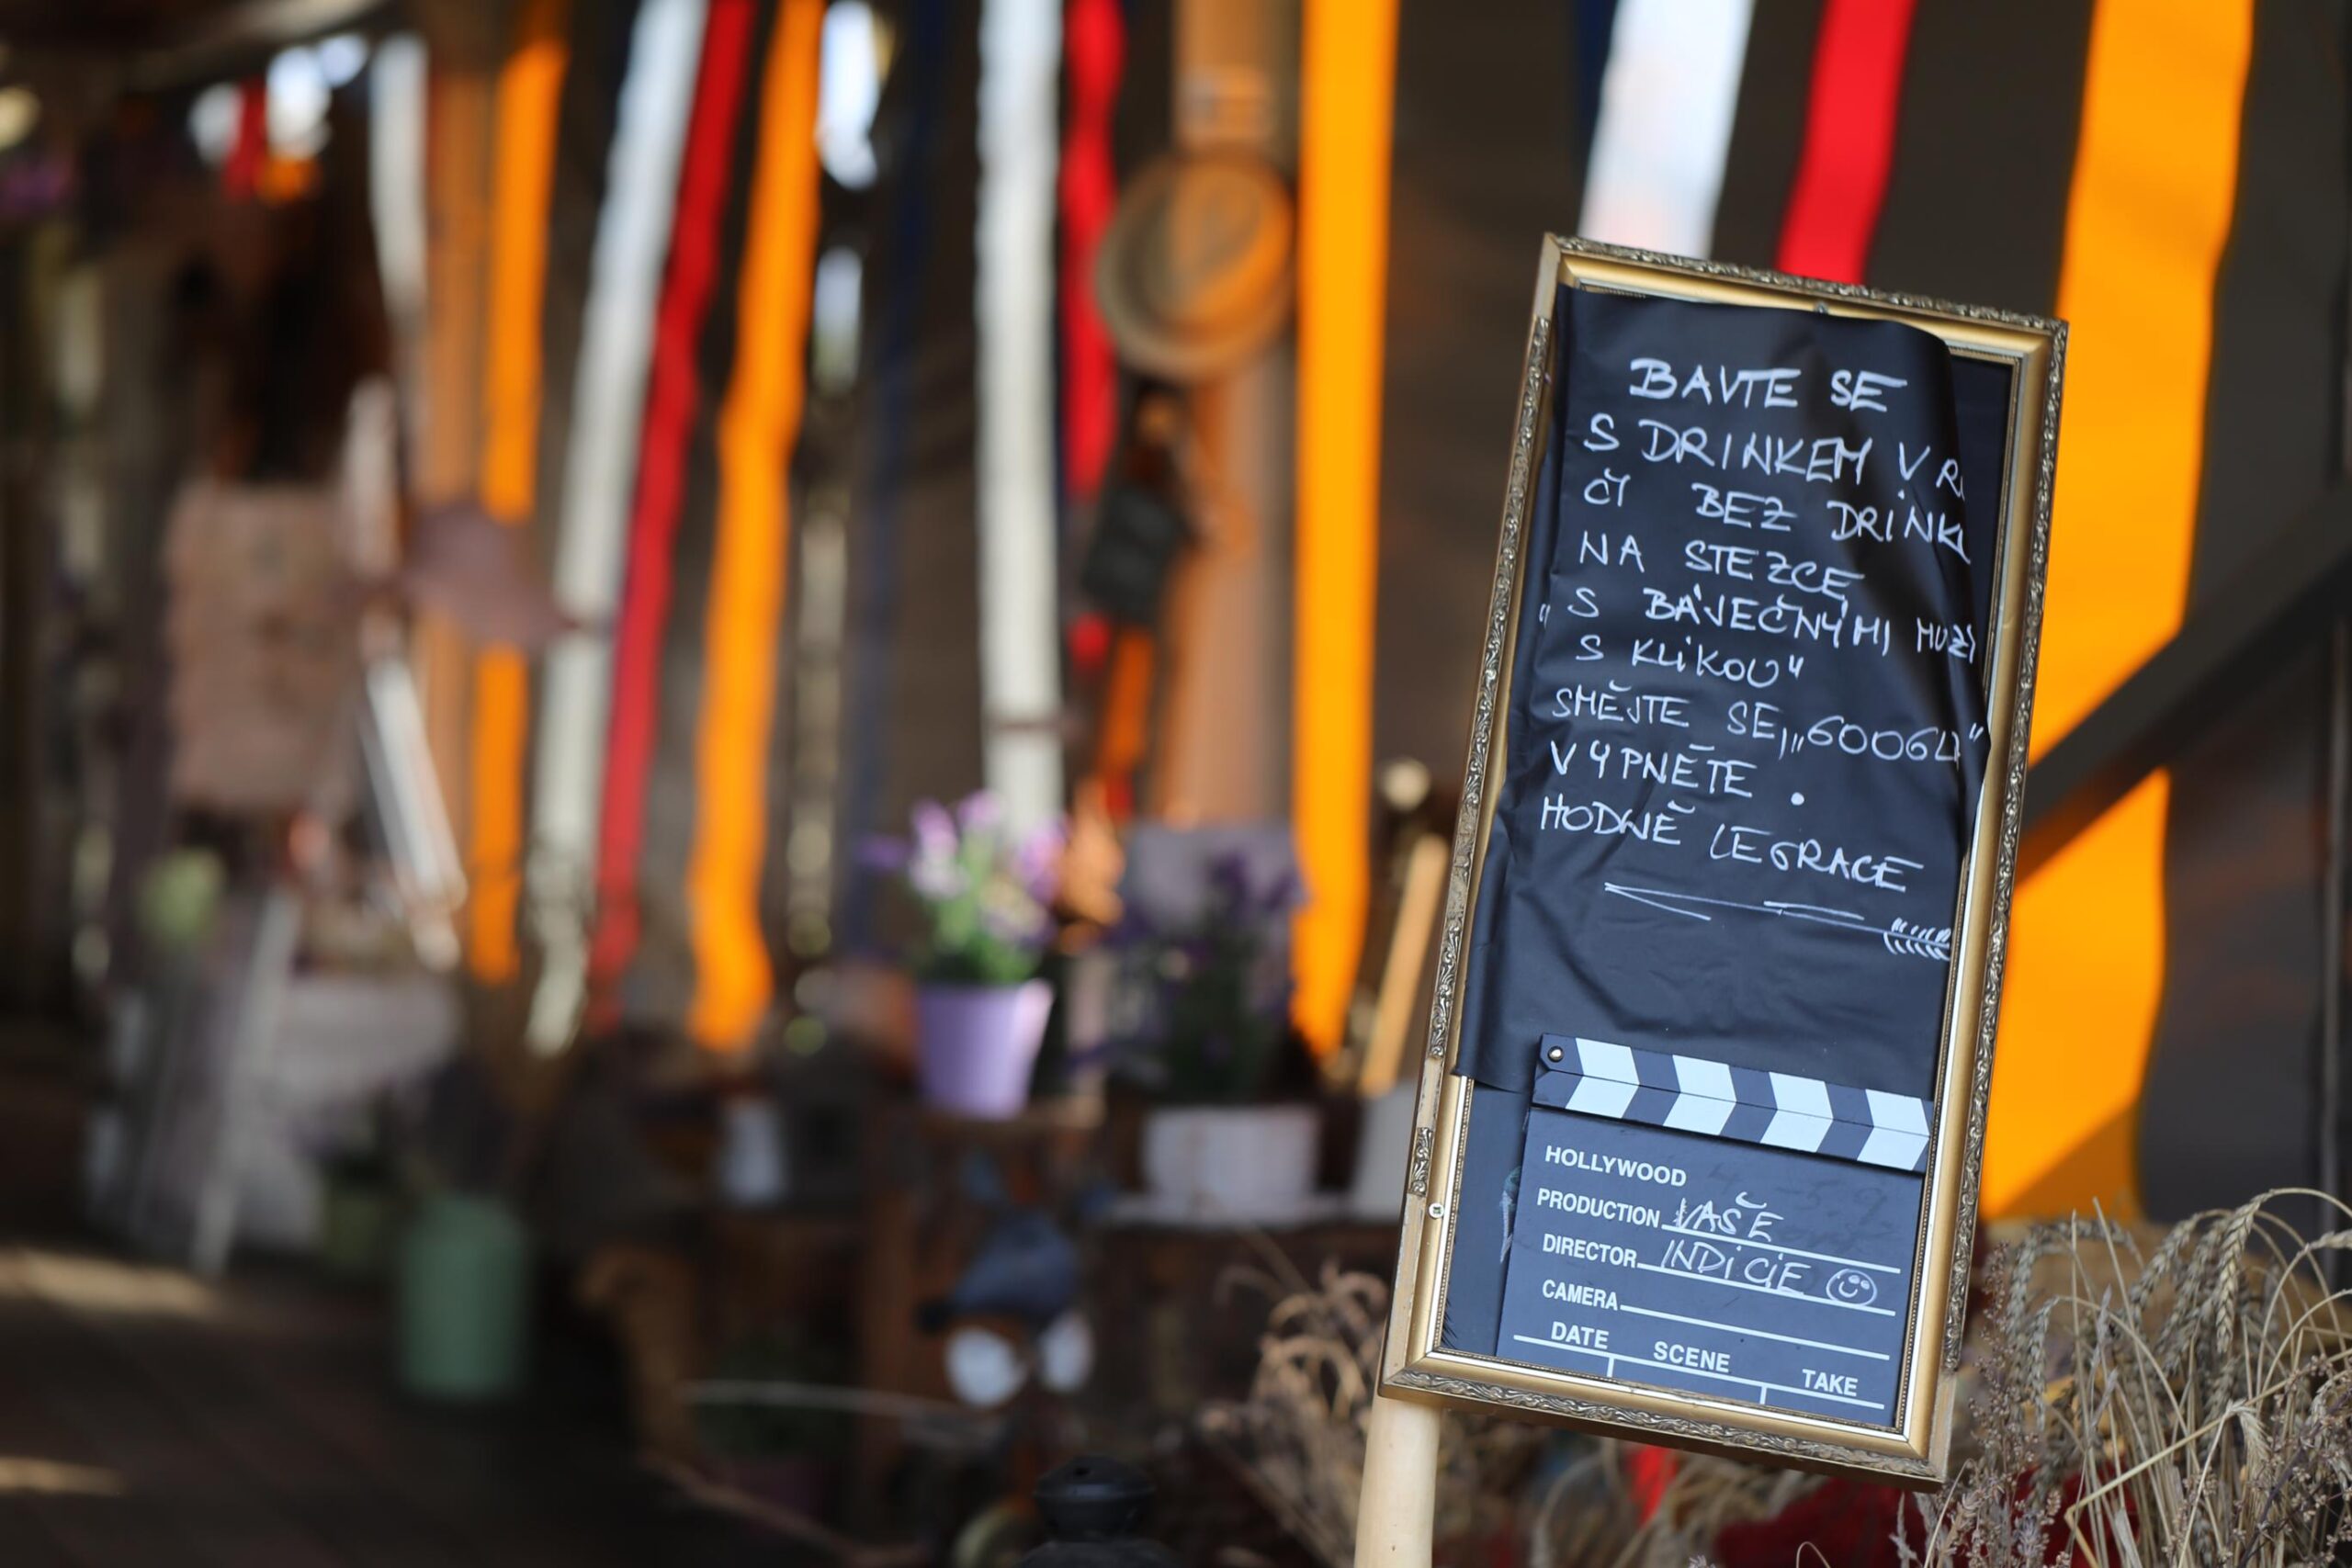 BAVTE SE
S DRINKEM V R
ČI BEZ DRINK
NA STEZCE
"S BÁJEČNÝMI MUŽI
S KLIKOU"
SMĚJTE SE, „GOOGLE"
VYPNĚTE.
HODNĚ LEGRACE
HOLLYWOOD
PRODUCTION VAŠE
DIRECTOR INDICIE
CAMERA
DATE SCENE TAKE